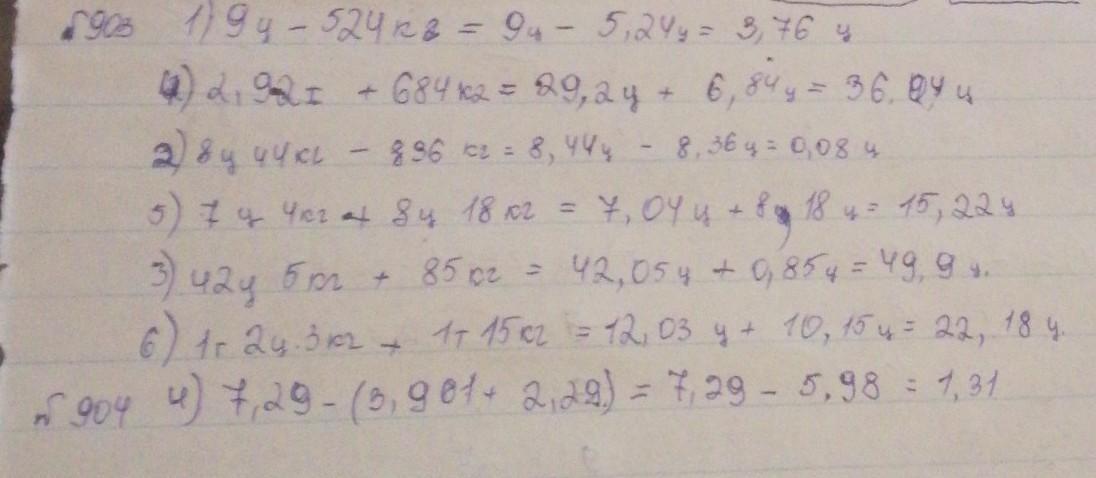 №903 1) 9ц - 524кг = 9ц - 5,24ц = 3,76 ц
4) 2,92т + 684кг = 29,2ц + 6,84ц = 36,04 ц
2) 8ц 44кг - 836 кг = 8,44ц - 8,36ц = 0,08 ц
5) 7ц 4кг + 8ц 18кг = 7,04ц + 8,18ц = 15,22ц
3) 42ц 5кг + 85кг = 42,05ц + 0,85ц = 49,9ц.
6) 1т 2ц 3кг + 1т 15кг = 12,03 ц + 10,15ц = 22,18 ц.
№904 4) 7,29 - (3,961 + 2,29) = 7,29 - 5,98 = 1,31